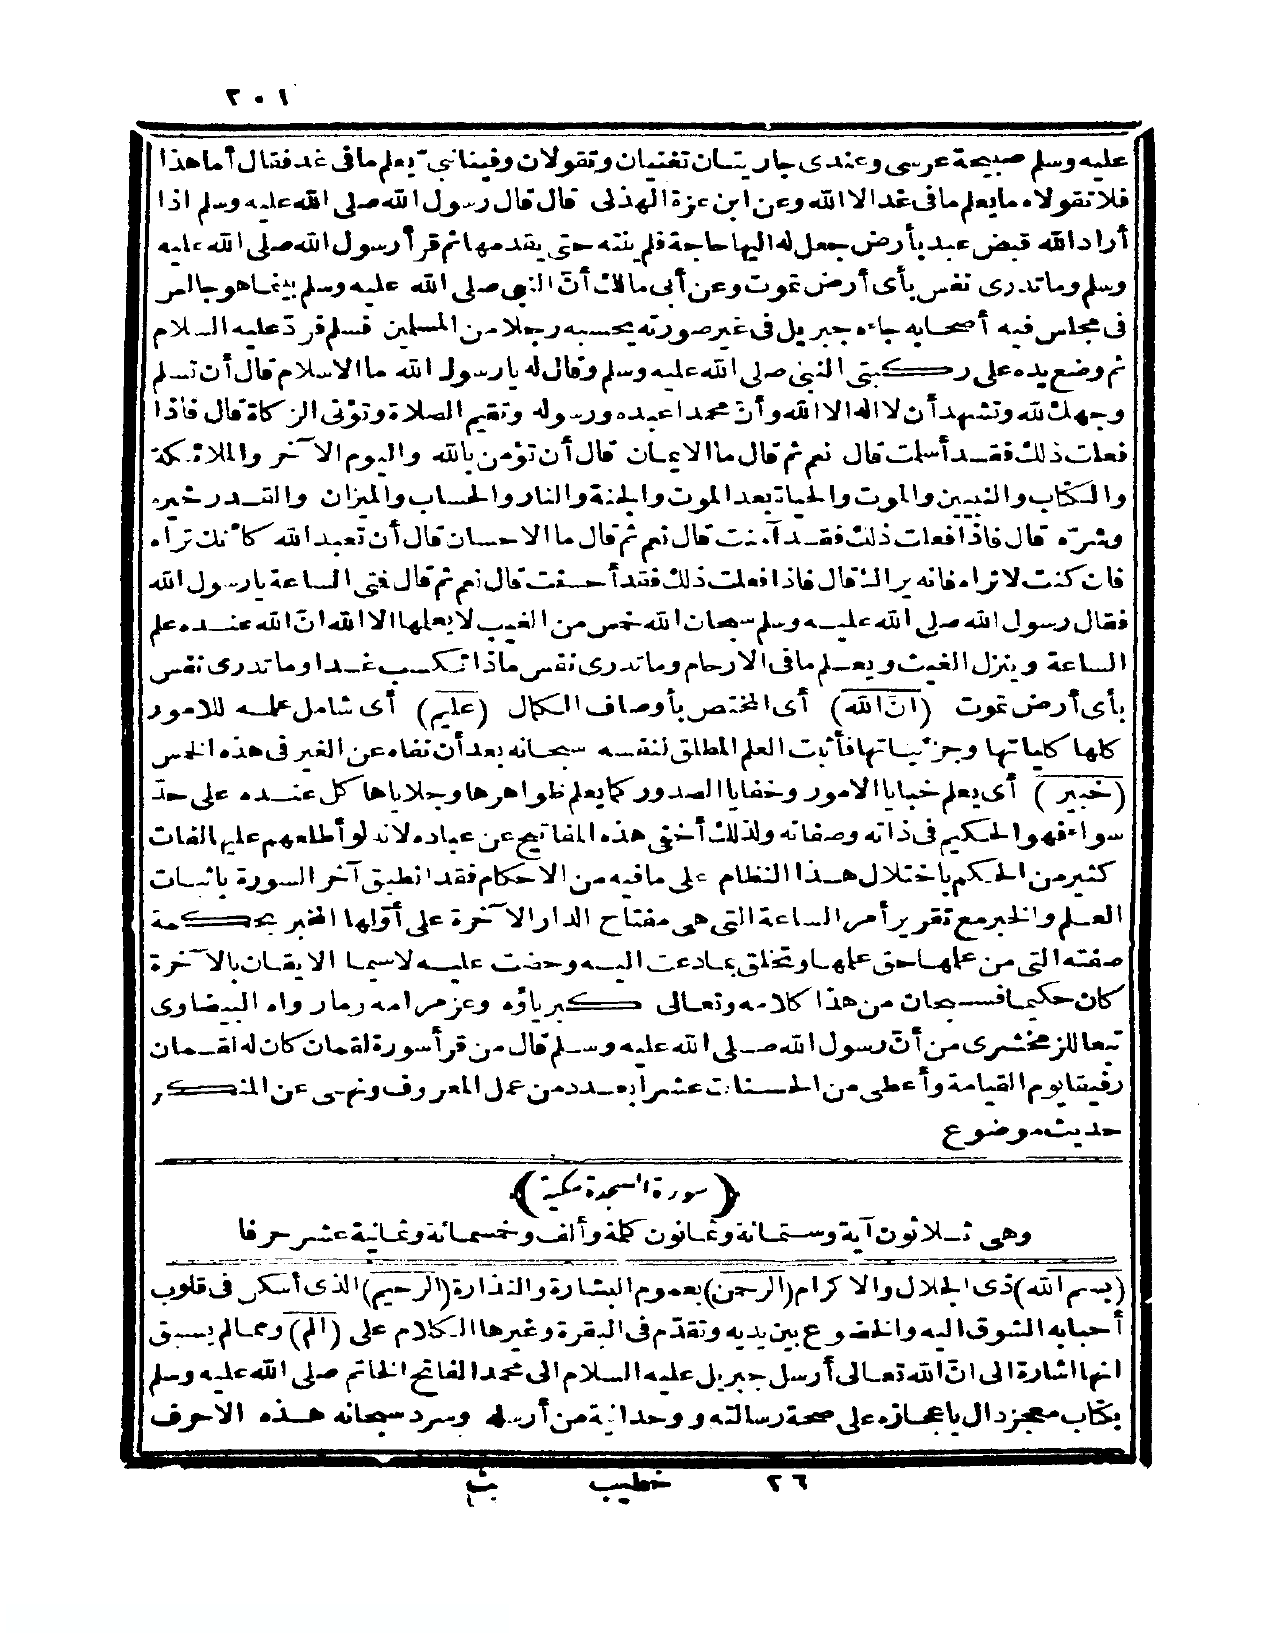 ٢٠١
عليه وسلم صبيحة عرسى وعندى جاريتان تغنيان وتقولان وفينا نبىّ يعلم ما فى غد فقال أما هذا
فلا تقولاه ما يعلم ما فى غد الا الله وعن ابن عزة الهذلى قال قال رسول الله صلى الله عليه وسلم اذا
أراد الله قبض عبد بأرض جعل له اليها حاجة فلم ينته حتى يقدمها ثم قرأ رسول الله صلى الله عليه
وسلم وما تدرى نفس بأى أرض تموت وعن أبى مالك أنّ النبى صلى الله عليه وسلم بينما هو جالس
فى مجلس فيه أصحابه جاءه جبريل فى غير صورته يحسبه رجلا من المسلمين فسلم فردّ عليه السلام
ثم وضع يده على ركبتى النبى صلى الله عليه وسلم وقال له يا رسول الله ما الاسلام قال أن تسلم
وجهك لله وتشهد أن لا اله الا الله وأنّ محمدا عبده ورسوله وتقيم الصلاة وتؤتى الزكاة قال فاذا
فعلت ذلك فقد أسلمت قال نعم ثم قال ما الايمان قال أن تؤمن بالله واليوم الآخر والملائكة
والكتاب والنبيين والموت والحياة بعد الموت والجنة والنار والحساب والميزان والقدر خيره
وشرّه قال فاذا فعلت ذلك فقد آمنت قال نعم ثم قال ما الاحسان قال أن تعبد الله كأنك تراه
فان كنت لا تراه فانه يراك قال فاذا فعلت ذلك فقد أحسنت قال نعم ثم قال فتى الساعة يا رسول الله
فقال رسول الله صلى الله عليه وسلم سبحان الله خمس من الغيب لا يعلمها الا الله انّ الله عنده علم
الساعة وينزل الغيث ويعلم ما فى الارحام وما تدرى نفس ماذا تكسب غدا وما تدرى نفس
بأى أرض تموت (انّ الله) أى المختص بأوصاف الكمال (عليم) أى شامل علمه للامور
كلها كلياتها وجزئياتها فأثبت العلم المطلق لنفسه سبحانه بعد أن نفاه عن الغير فى هذه الخمس
(خبير) أى يعلم خبايا الامور وخفايا الصدور كما يعلم ظواهرها وجلاياها كل عنده على حدّ
سواء فهو الحكيم فى ذاته وصفاته ولذلك أخفى هذه المفاتيح عن عباده لانه لو أطلعهم عليها لفات
كثير من الحكم باختلال هذا النظام على ما فيه من الاحكام فقد انطبق آخر السورة باثبات
العلم والخبر مع تقرير أمر الساعة التى هى مفتاح الدار الآخرة على أوّلها المخبر بحكمة
صفته التى من علمها حق علمها وتخلق بما دعت اليه وحضت عليه لا سيما الايقان بالآخرة
كان حكيما فسبحان من هذا كلامه وتعالى كبرياؤه وعز مرامه وما رواه البيضاوى
تبعا للزمخشرى من أنّ رسول الله صلى الله عليه وسلم قال من قرأ سورة لقمان كان له لقمان
رفيقا يوم القيامة وأعطى من الحسنات عشرا بعدد من عمل المعروف ونهى عن المنكر
حديث موضوع
﴿سورة السجدة مكية﴾
وهى ثلاثون آية وستمائة وثمانون كلمة وألف وخمسمائة وثمانية عشر حرفا
(بسم الله) ذى الجلال والاكرام (الرحمن) بعموم البشارة والنذارة (الرحيم) الذى أسكن فى قلوب
أحبابه الشوق اليه والخضوع بين يديه وتقدّم فى البقرة وغيرها الكلام على (الم) ومما لم يسبق
انها اشارة الى انّ الله تعالى أرسل جبريل عليه السلام الى محمد الفاتح الخاتم صلى الله عليه وسلم
بكتاب معجز دال باعجازه على صحة رسالته ووحدانية من أرسله وسرد سبحانه هذه الاحرف
٢٦ خطيب ث